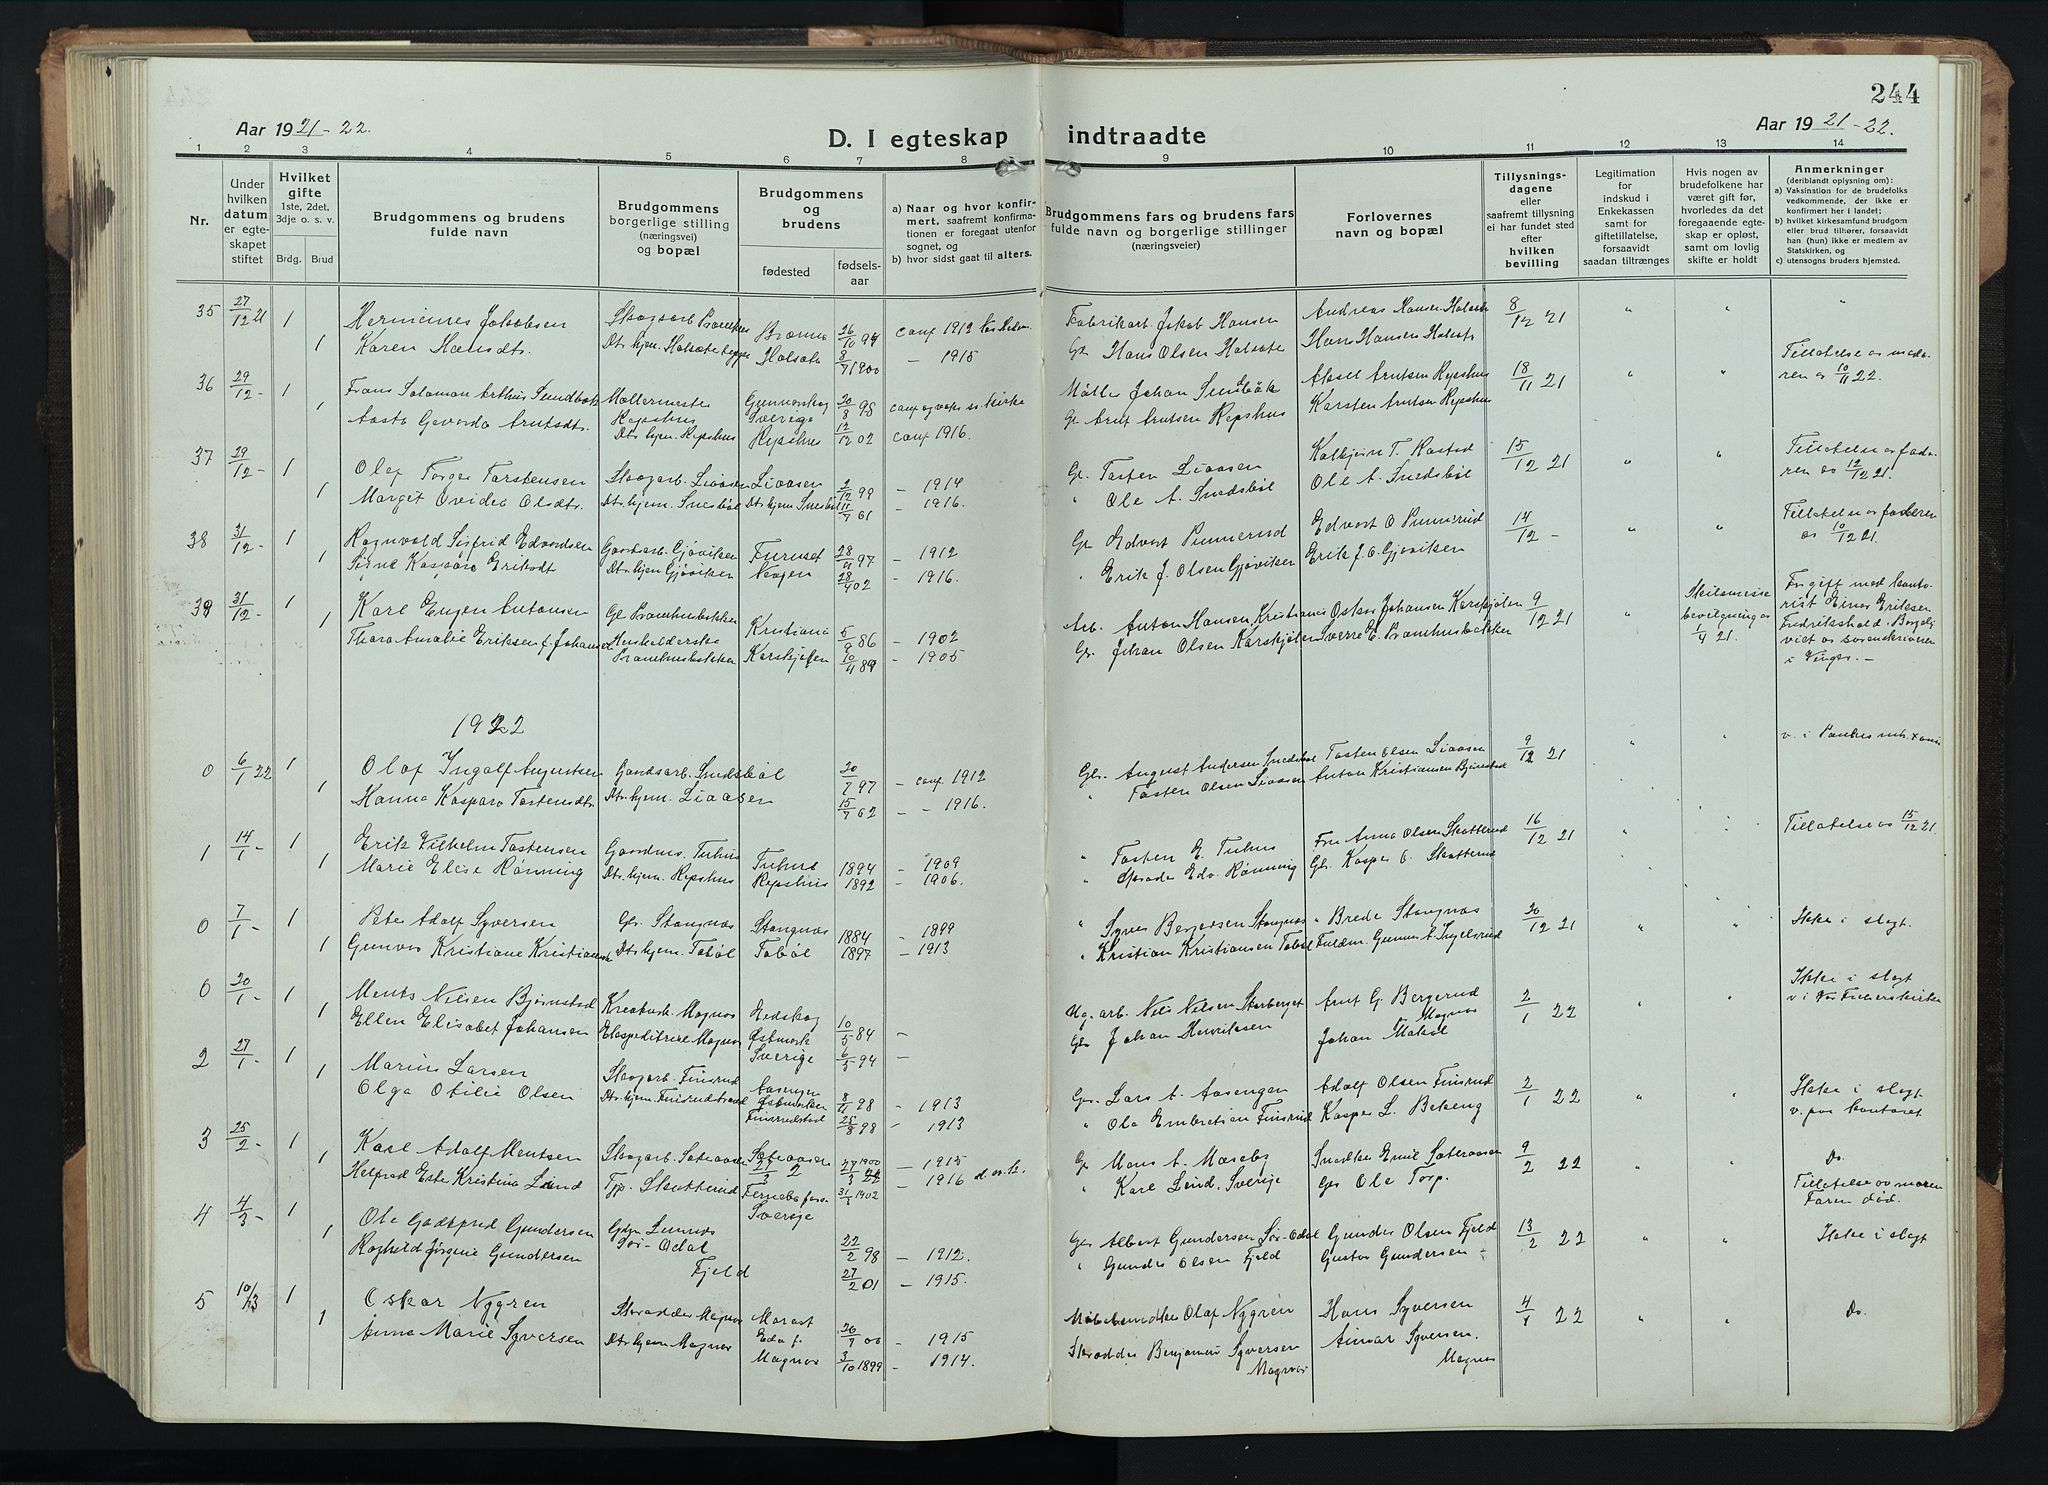 244
Aar 19 21-22.
D. I egteskap indtraadte
Aar 19 21-22.
1 2 3 4 5 6 7 8 9 10 11 12 13 14
Nr.
Under hvilken datum er egteskapet stiftet
Hvilket gifte 1ste, 2det, 3dje o. s. v.
Brdg. Brud
Brudgommens og brudens fulde navn
Brudgommens borgerlige stilling (næringsvei) og bopæl
Brudgommens og brudens
fødested
fødselsaar
a) Naar og hvor konfirmert, saafremt konfirmationen er foregaat utenfor sognet, og
b) hvor sidst gaat til alters.
Brudgommens fars og brudens fars fulde navn og borgerlige stillinger (næringsveier)
Forlovernes navn og bopæl
Tillysningsdagene eller saafremt tillysning ei har fundet sted efter hvilken bevilling
Legitimation for indskud i Enkekassen for giftetillatelse, forsaavidt saadan tiltrænges
Hvis nogen av brudefolkene har været gift før, hvorledes da det foregaaende egteskap er opløst, samt om lovlig skifte er holdt
Anmerkninger (deriblandt oplysning om):
a) Vaksination for de brudefolks vedkommende, der ikke er konfirmert her i landet;
b) hvilket kirkesamfund brudgom eller brud tilhører, forsaavidt han (hun) ikke er medlem av Statskirken, og
c) utensogns bruders hjemsted.
35 27/12 21 1 Hermennes Jakobsen Skogsarb. 26/10 94 conf 1912 Fabrikarb. Jakob Hansen Andreas Hansen Holsete 8/12 21 " " "
1 Karen Hansdt. Dtr. hjem. Holsæte Holsæte 8/7 1900 – 1915 Gb. Hans Olsen Holsæte Hans Hansen Holsete
36 29/12 1 Frans Salomon Arthur Sundbäk Møllermester Repshus Gunnarskog Sverige 30/8 98 Møller Johan Sundbäk Aksel Arntsen Repshus 18/11 21 " " Tillatelse av moderen av 10/11 22.
1 Aasta Gevorda Arntsdt. Dtr. hjem. Repshus Repshus 12/12 02 conf 1916. Gb. Arnt Arntsen Repshus Karsten Arntsen Repshus
37 29/12 - 1 Olaf Torger Torstensen Skogarb. Liaasen Liaasen 2/12 99 – 1914 Gb. Tosten Liaasen Kolbjørn T. Rastad 15/12 21 " " Tillatelse av faderen av 12/12 21.
1 Margit Ovidia Olsdt. Dtr. hjem. Snesbøl 11/7 01 – 1916. " Ole A. Snedsbøl Ole A. Snedsbøl
38 31/12 - 1 Ragnvald Sigfrid Edvardsen Gaardsarb. Gjøviken Furuset 28/4 97 – 1912 Gb. Edvart Pinnerud Edvart O Pinnerud 14/12 - " " Tillatelse av faderen av 10/12 21.
1 Signe Kaspara Eriksdt Dtr. hjem Gjøviken 28/4 02 – 1916. " Erik J. Olsen Gjøviken Erik J. O. Gjøviken
39 31/12 - 1 Karl Eugen Antonsen Gb. Pramhusbakken Kristiania 5/9 86 – 1902 Arb. Anton Hansen Kristiania Oskar Johansen Karskjølen 9/12 21 " Skilsmissebevilgning av 1/4 21. Frugift med kontorist Einar Eriksen Fredrikshald. Borgelig viet av sorenskriveren i Vinger. –
1 Thora Amalie Eriksen f. Johansen Husholderske Pramhusbakken Karskjølen 10/4 89 – 1905 Gb. Johan Olsen Karskjølen Sverre E. Pramhusbakken
1922
0 6/1 22 1 Olaf Ingolf Augustsen Gaardsarb. Snedsbøl 20/7 97 – conf 1912 Gb. August Andersen Snedsbøl Tosten Olsen Liaasen 9/12 21 " "
1 Hanna Kaspara Tostensdtr. Dtr. hjem. Liaasen 15/7 02 – 1916. " Tosten Olsen Liaasen Anton Kristiansen Bjørnstad
1 14/1 - 1 Erik Vilhelm Tostensen Gaardm. Tuhus Tuhus 1894 – 1909 " Tosten E. Tuhus Fru Anna Olsen Skotterud 16/12 21 " " Tillatelse av 15/12 21.
1 Marie Elise Rønning Dtr. hjem. Repshus Repshus 1892 – 1906. " Edv. Rønning Gb. Kasper O. Skotterud
0 7/1 - 1 Peter Adolf Syversen Gb. Stangnes Stangnes 1884 – 1899 " Syver Bergersen Stangnes " Brede Stangnes 30/12 21 " " Ikke i slegt.
1 Gunvor Kristiane Kristiansen Dtr. hjem. Tobøl Tobøl 1897 – 1913 " Kristian Kristiansen Tobøl Fuldm. Gunnar A. Ingelsrud
0 20/1 - 1 Ments Nilsen Bjørnstad Magnor Eidskog 10/5 84 – Nils Nilsen Storberget Arnt G. Bergerud Magnor 2/1 22 " " Ikke i slegt
1 Ellen Elisabet Johansen Ekspeditrice Magnor Østmark Sverige 6/5 94 – Gb. Johan Henriksen Johan Makøl
2 27/1 - 1 Marius Larsen Skogarb. Finsrud Aasengen Østmarken 8/11 98 – 1913 Gb. Lars A. Aasengen Adolf Olsen Finsrud 2/1 22 " " Ikke i slegt. v. paa kontoret
1 Olga Otilie Olsen Dtr. hjem. Finsrudstad Finsrudstad 25/8 98 – 1913 " Ole Embretsen Finsrud Kasper L. Bekeng
3 25/2 - 1 Karl Adolf Mentsen Skogarb. Sæteraasen Sæteraasen 27/3 1900 – 1915 Gb. Mons A. Moseby Snedker Emil Sæteraasen 9/2 22 " " Do.
1 Helfrid Ester Kristina Lind Tjp. Skotterud Fernebo fors. Sverige 31/1 1902 – 1916 Karl Lind, Sverige Gb. Ole Torp. Tillatelse av moren Faren død.
4 4/3 - 1 Ole Godtfred Gundersen Sør-Odal 22/2 98 – 1912. Gb. Albert Gundersen Sør-Odal Gunder Olsen Fjeld 13/2 22 " " Ikke i slegt
1 Raghild Jørgine Gundersen Fjeld 27/2 01 – 1915. " Gunder Olsen Fjeld Gustav Gundersen -
5 10/3 1 Oskar Nygren Skrædder Magnor Morast Eda f. 26/7 00 – 1915 Møbelsnedker Olaf Nygren Hans Syversen 4/1 22 " " Do.
1 Anna Marie Syversen Dtr. hjem Magnor Magnor 3/10 1899 – 1914. Skrædder Benjamin Syversen Magnor Einar Syversen. Magnor